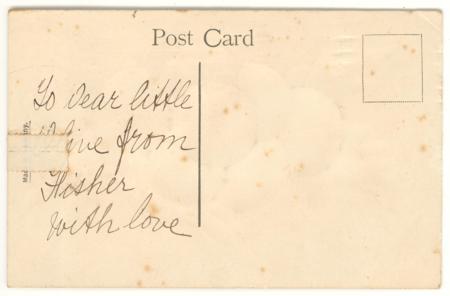 Post Card
To dear little
from
Fisher
with love